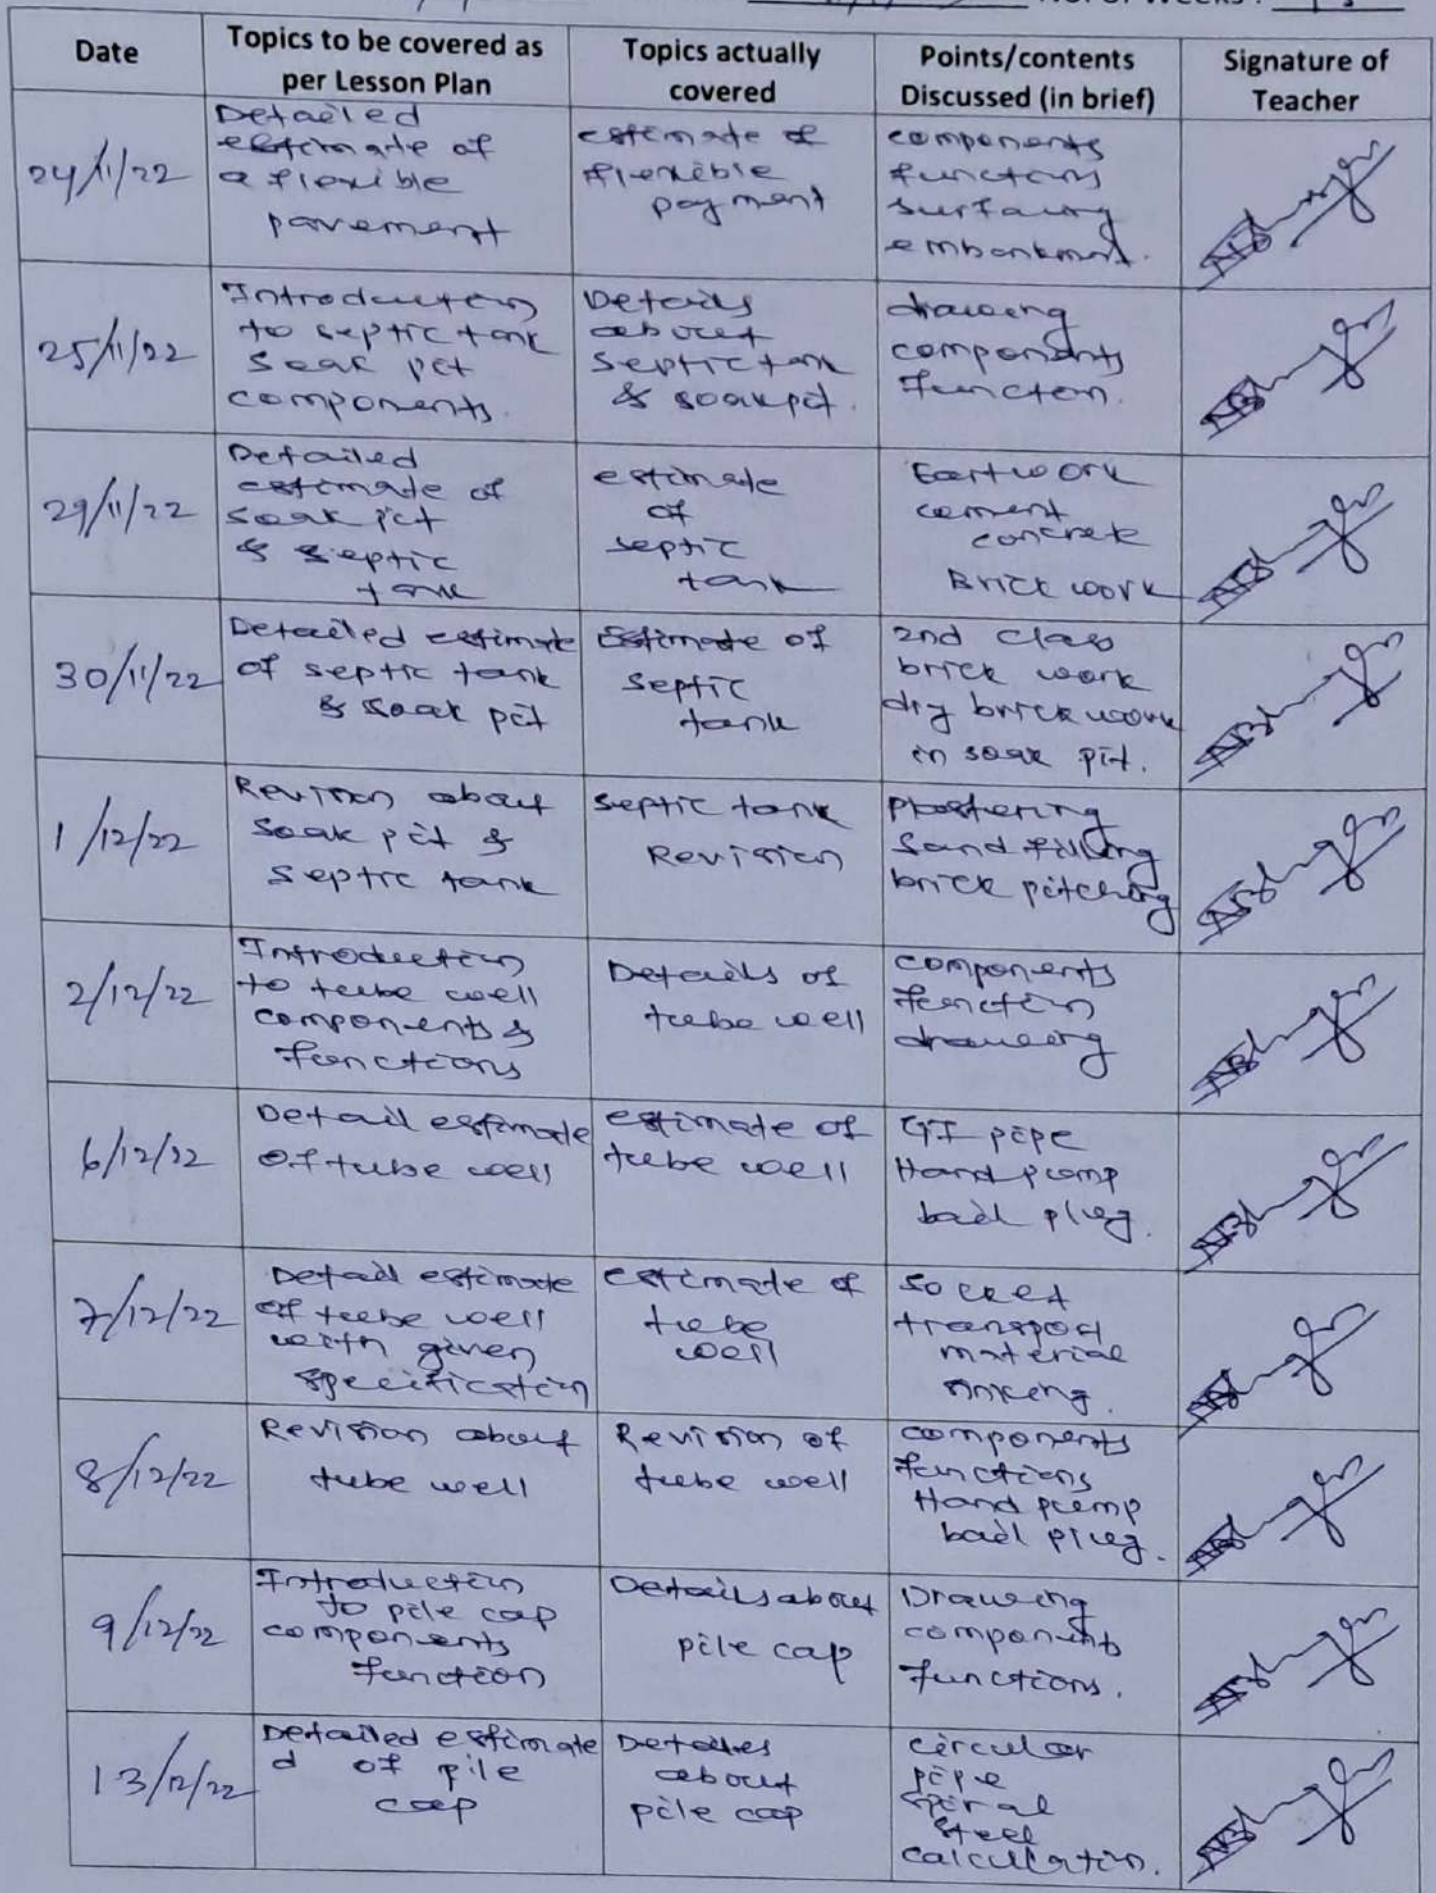 No. of Weeks :
Date
Topics to be covered as
per Lesson Plan
Topics actually
covered
Points/contents
Discussed (in brief)
Signature of
Teacher
24/11/22
Detailed
estimate of
a flexible
pavement
estimate of
flexible
payment
components
functions
surfacing
embankment.
25/11/22
Introduction
to septic tank
Soak pit
components.
Details
about
septic tank
& soak pit.
drawing
components
function.
29/11/22
Detailed
estimate of
soak pit
& septic
tank
estimate
of
septic
tank
Eartwork
cement
concrete
Brick work
30/11/22
Detailed estimate
of septic tank
& soak pit
Estimate of
septic
tank
2nd class
brick work
dry brick work
in soak pit.
1/12/22
Revision about
soak pit &
septic tank
septic tank
Revision
Plastering
Sand filling
brick pitching
2/12/22
Introduction
to tube well
components &
functions
Details of
tube well
components
function
drawing
6/12/22
Detail estimate
of tube well
estimate of
tube well
GI pipe
Hand pump
bail plug.
7/12/22
Detail estimate
of tube well
with given
specification
estimate of
tube
well
socket
transport
material
sinking.
8/12/22
Revision about
tube well
Revision of
tube well
components
functions
Hand pump
bail plug.
9/12/22
Introduction
to pile cap
components
function
Details about
pile cap
Drawing
components
functions.
13/12/22
Detailed estimate
d of pile
cap
Detailes
about
pile cap
circular
pipe
spiral
steel
calculation.